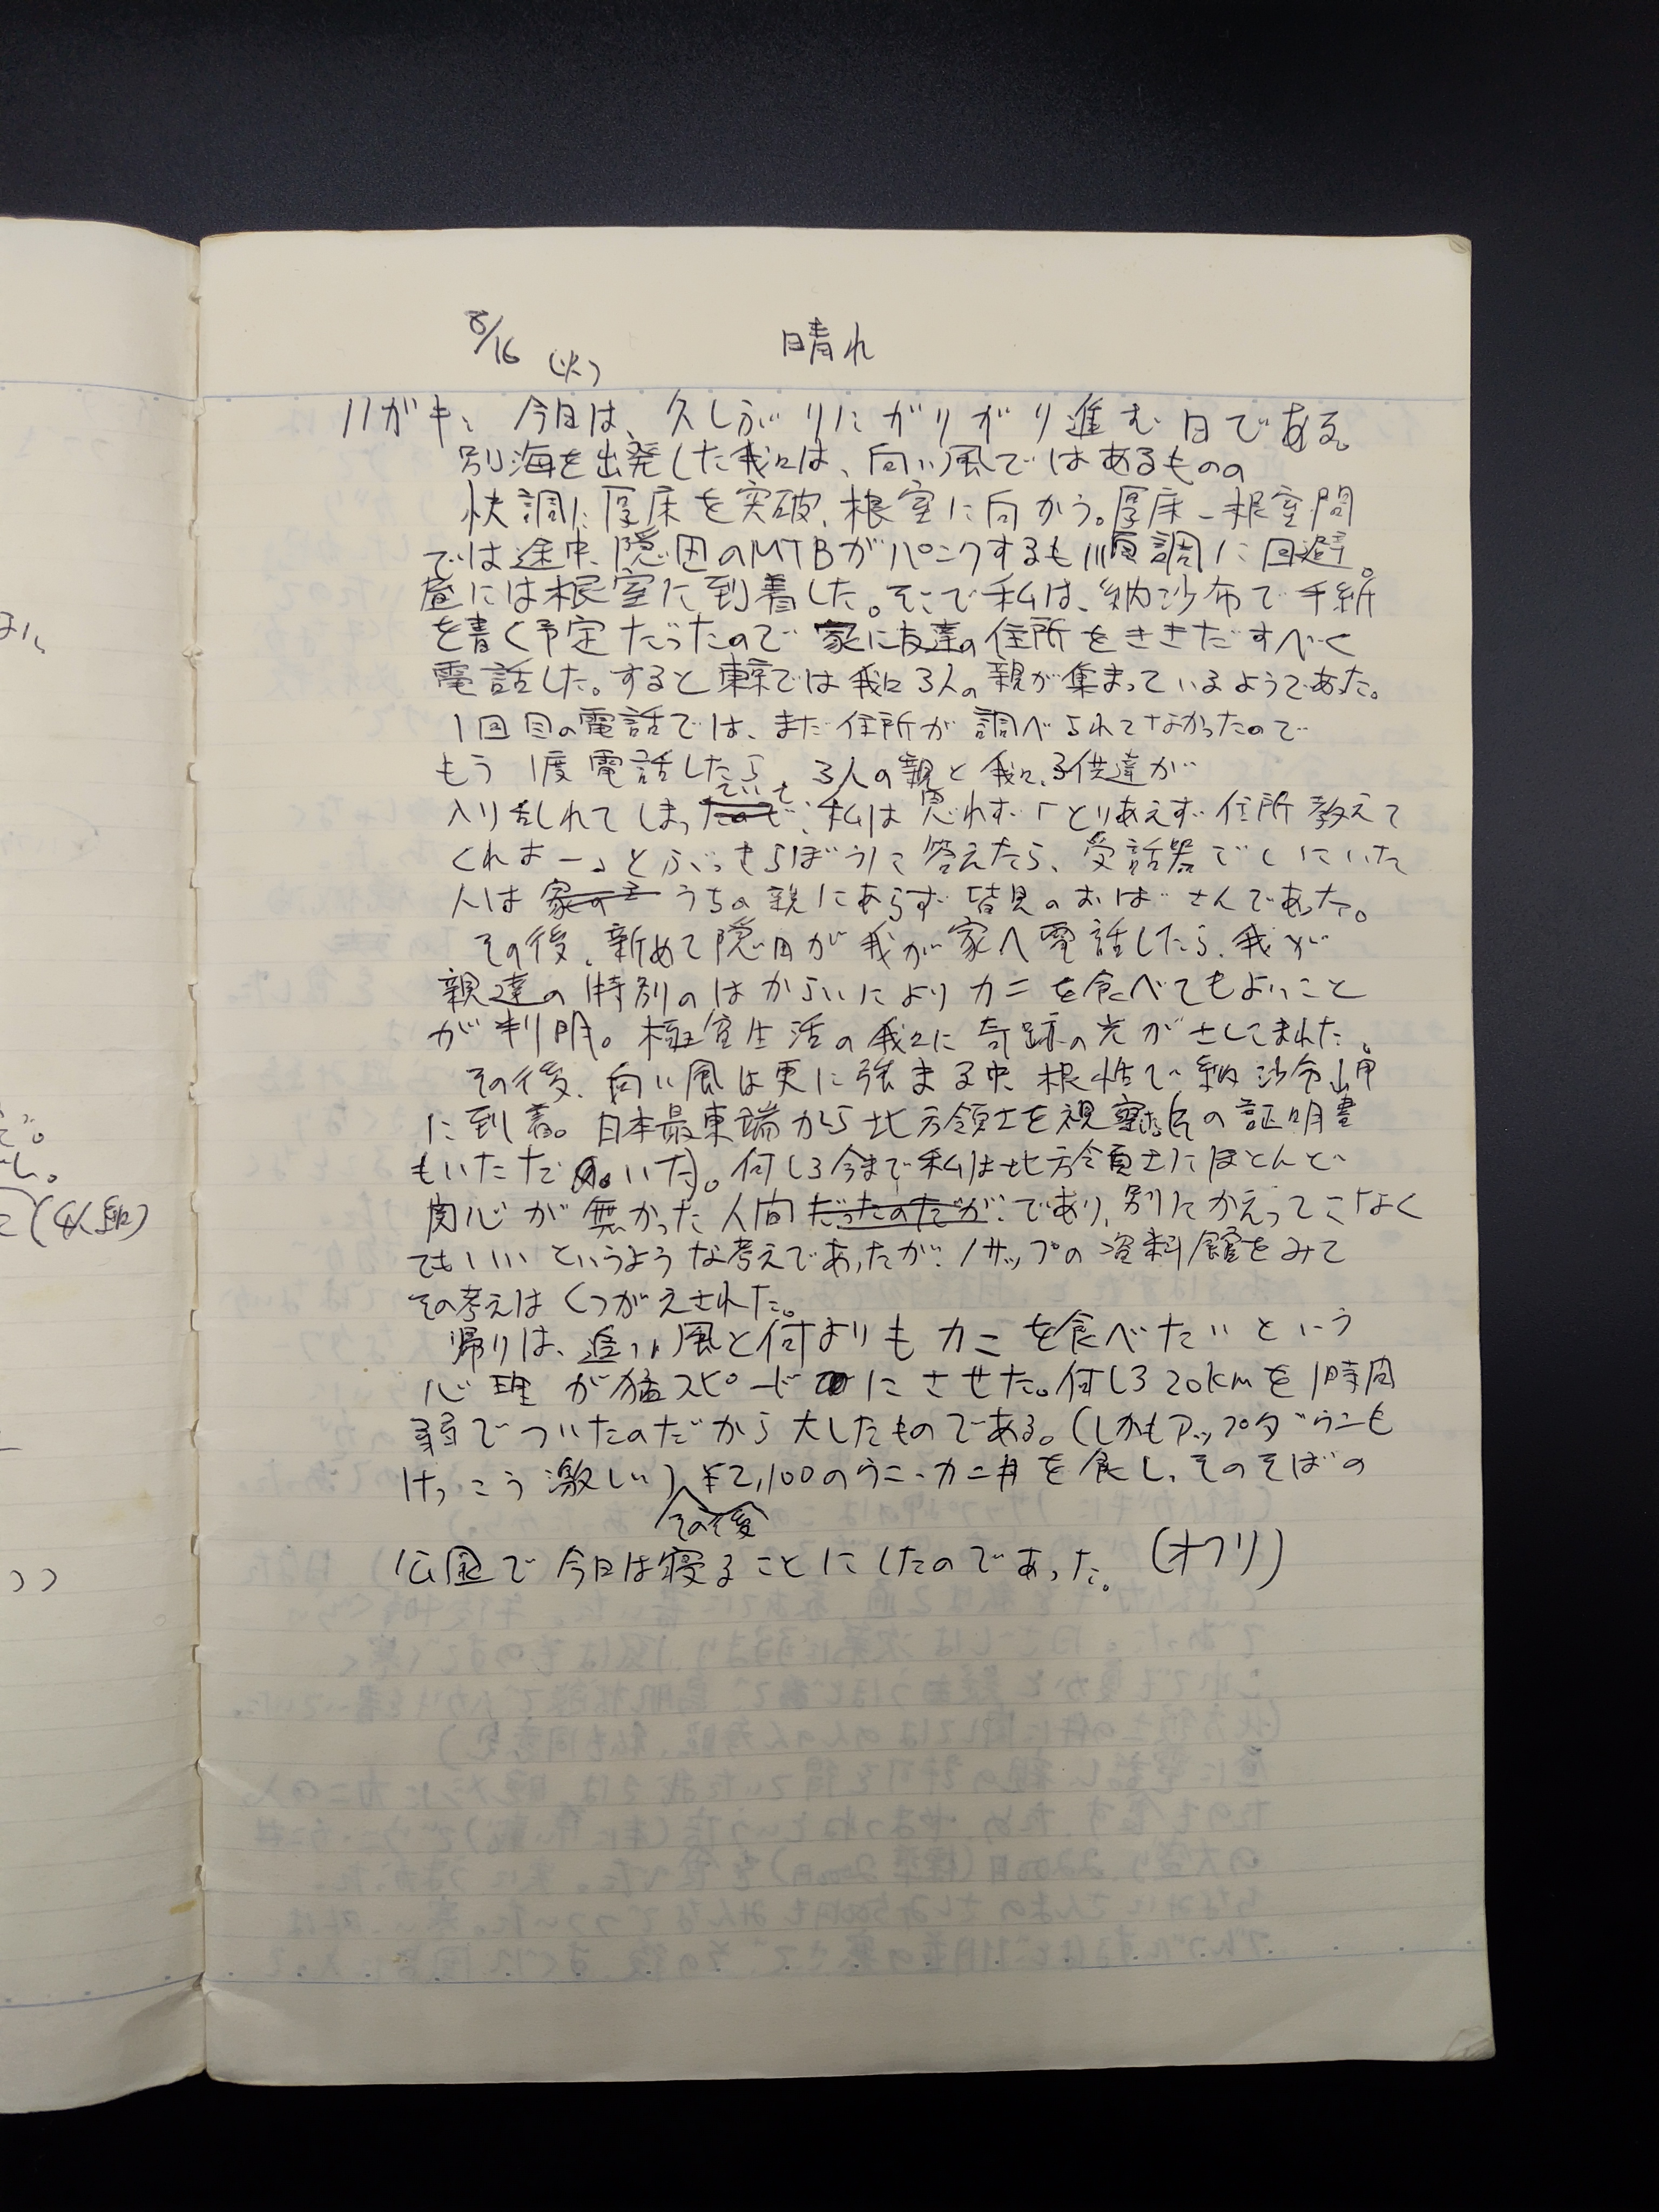 8/16 (火) 晴れ
ハガキ、今日は、久しぶりにガリガリ進む日である。
別海を出発した我々は、向い風ではあるものの
快調に厚床を突破、根室に向かう。厚床-根室間
では途中、隠田のMTBがパンクするも順調に回避。
昼には根室に到着した。そこで私は、納沙布で手紙
を書く予定だったので家に友達の住所をききだすべく
電話した。すると東京では我々3人の親が集まっているようであった。
1回目の電話では、まだ住所が調べられてなかったので
もう1度電話したら、3人の親と我々子供達が
入り乱れてしまっていて、私は思わず「とりあえず住所教えて
くれよー」とぶっきらぼうに答えたら、受話器でじにいた
人は うちの親にあらず皆見のおばさんであった。
その後、新めて隠田が我が家へ電話したら、我が
親達の特別のはからいによりカニを食べてもよいこと
が判明。極貧生活の我々に奇跡の光がさしこまれた。
その後、向い風は更に強まる中、根性で納沙布岬
に到着。日本最東端から北方領土を視察、の証明書
もいただいた。何しろ今まで私は北方領土にほとんど
関心が無かった人間であり、別にかえってこなく
てもいいというような考えであったが、ノサップの資料館をみて
その考えはくつがえされた。
帰りは、追い風と何よりもカニを食べたいという
心理が猛スピードにさせた。何しろ20kmを1時間
弱でついたのだから大したものである。(しかもアップダウンも
けっこう激しい) ¥2,100のウニ・カニ丼を食し、そのそばの
その後
公園で今日は寝ることにしたのであった。(オフリ)